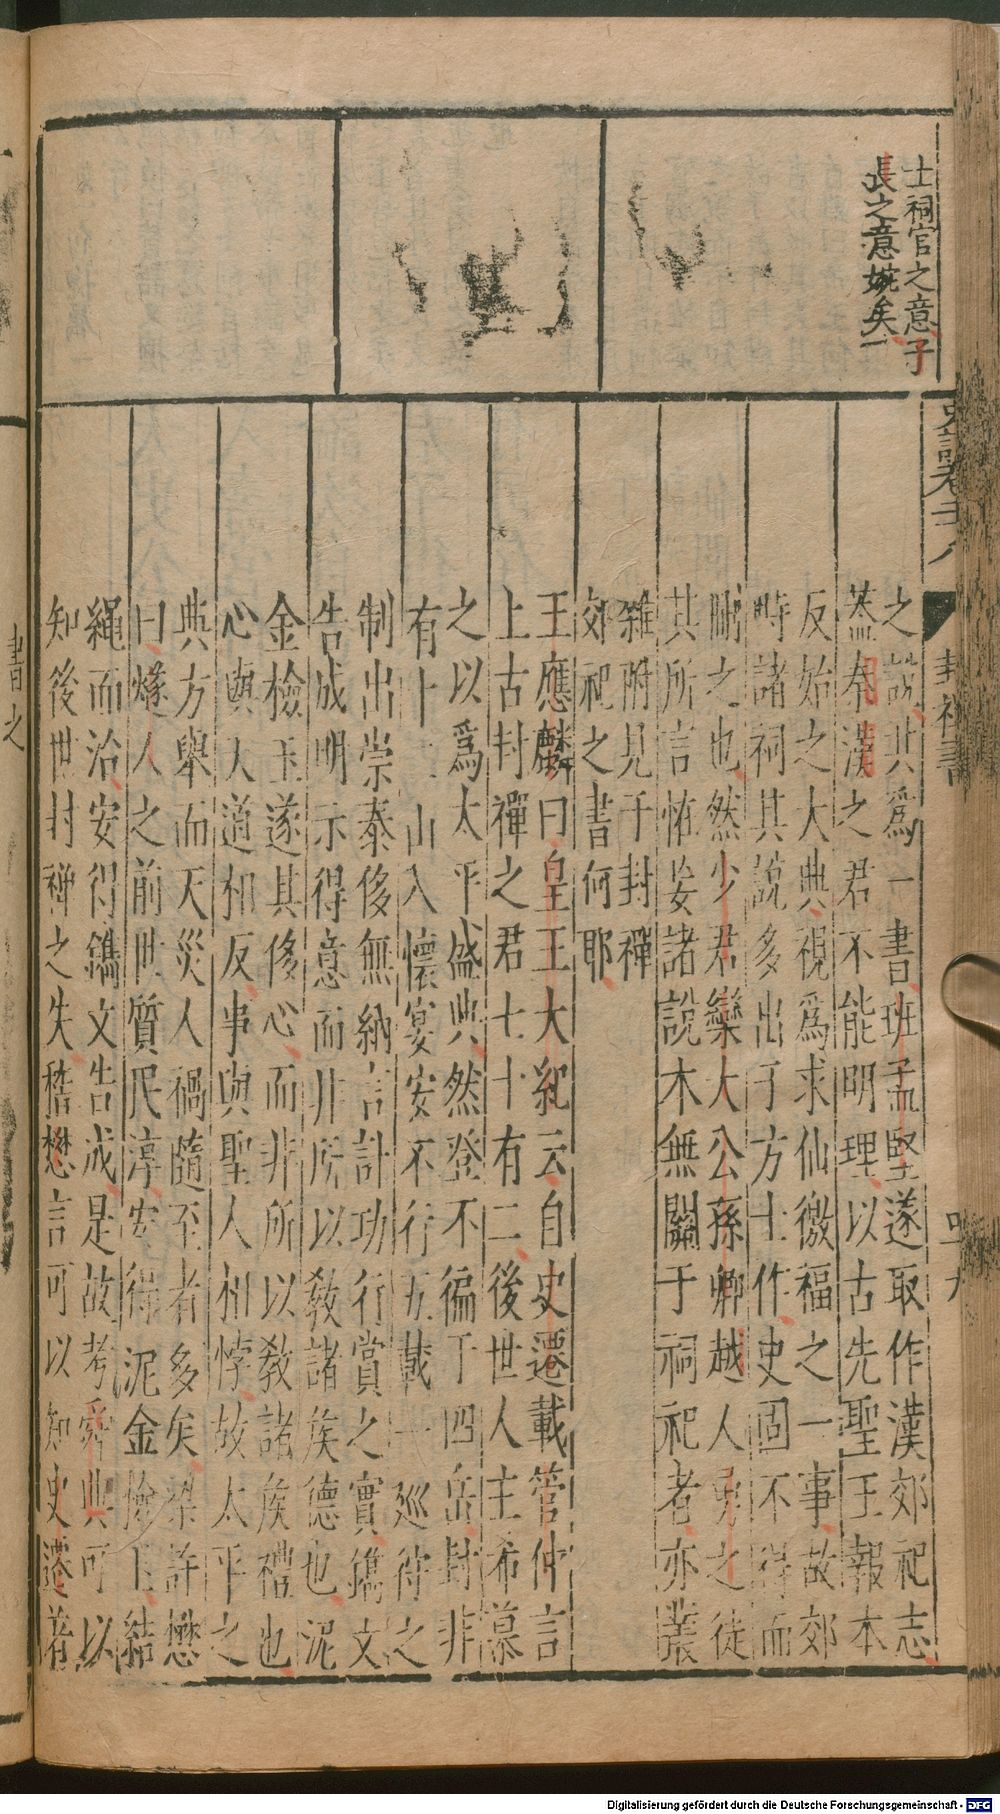 士祠官之意子
長之意婉矣
史記卷二十八
封禪書
四十九
之說共爲一書班孟堅遂取作漢郊祀志
蓋秦漢之君不能明理以古先聖王報本
反始之大典視爲求仙徼福之一事故郊
畤諸祠其說多出于方士作史固不得而
刪之也然少君欒大公孫卿越人勇之徒
其所言怪妄諸說本無關于祠祀者亦叢
雜附見于封禪
郊祀之書何耶
王應麟曰皇王大紀云自史遷載管仲言
上古封禪之君七十有二後世人主希慕
之以爲太平盛典然登不徧于四岳封非
有十二山入懷宴安不行五載一巡狩之
制出崇泰侈無納言計功行賞之實鐫文
告成明示得意而非所以敎諸侯德也泥
金檢玉遂其侈心而非所以敎諸侯禮也
心與天道相反事與聖人相悖故太平之
典方舉而天災人禍隨至者多矣梁許懋
曰燧人之前世質民淳安得泥金檢玉結
繩而治安得鐫文告成是故考舜典可以
知後世封禪之失稽懋言可以知史遷著
書之
Digitalisierung gefördert durch die Deutsche Forschungsgemeinschaft - DFG